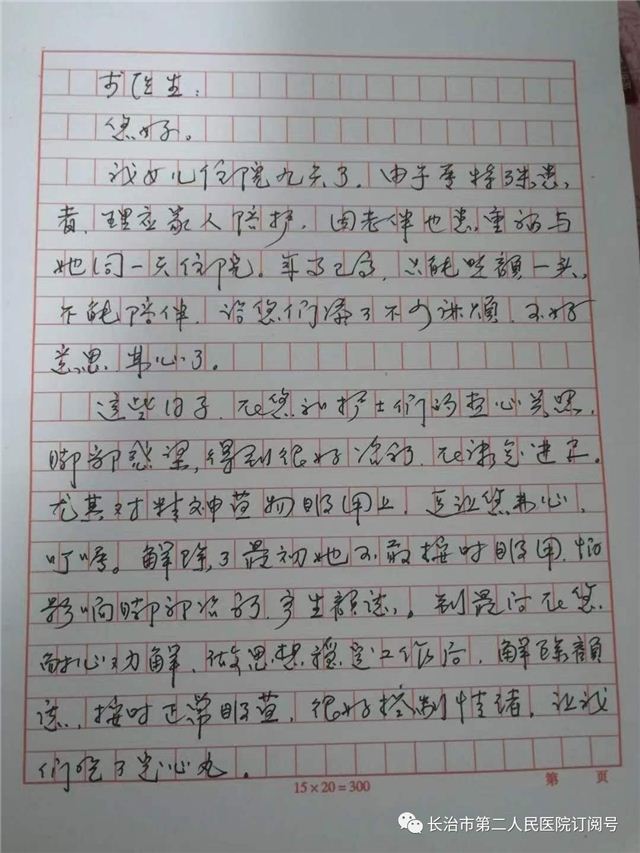 医生：
您好。
我女儿住院九天了，由于是特殊患
者，理应家人陪护，因老伴也患重病与
她同一天住院，年已高，只能照顾一头，
不能陪伴，给您们添了不少麻烦，不好
意思，费心了。
这些日子，在您和护士们的心关照，
脚部感染，得到很好治疗，在进
尤其对精神药物服用上，让您费心，
叮咛。解除了最初她不敢按时服用，怕
影响脚部治疗，产生顾虑。到最后在您
耐心劝解，做思想稳定工作后，解除顾
虑，按时正常服药，很好控制情绪，让我
们吃了定心丸。
15×20=300
第 页
长治市第二人民医院订阅号